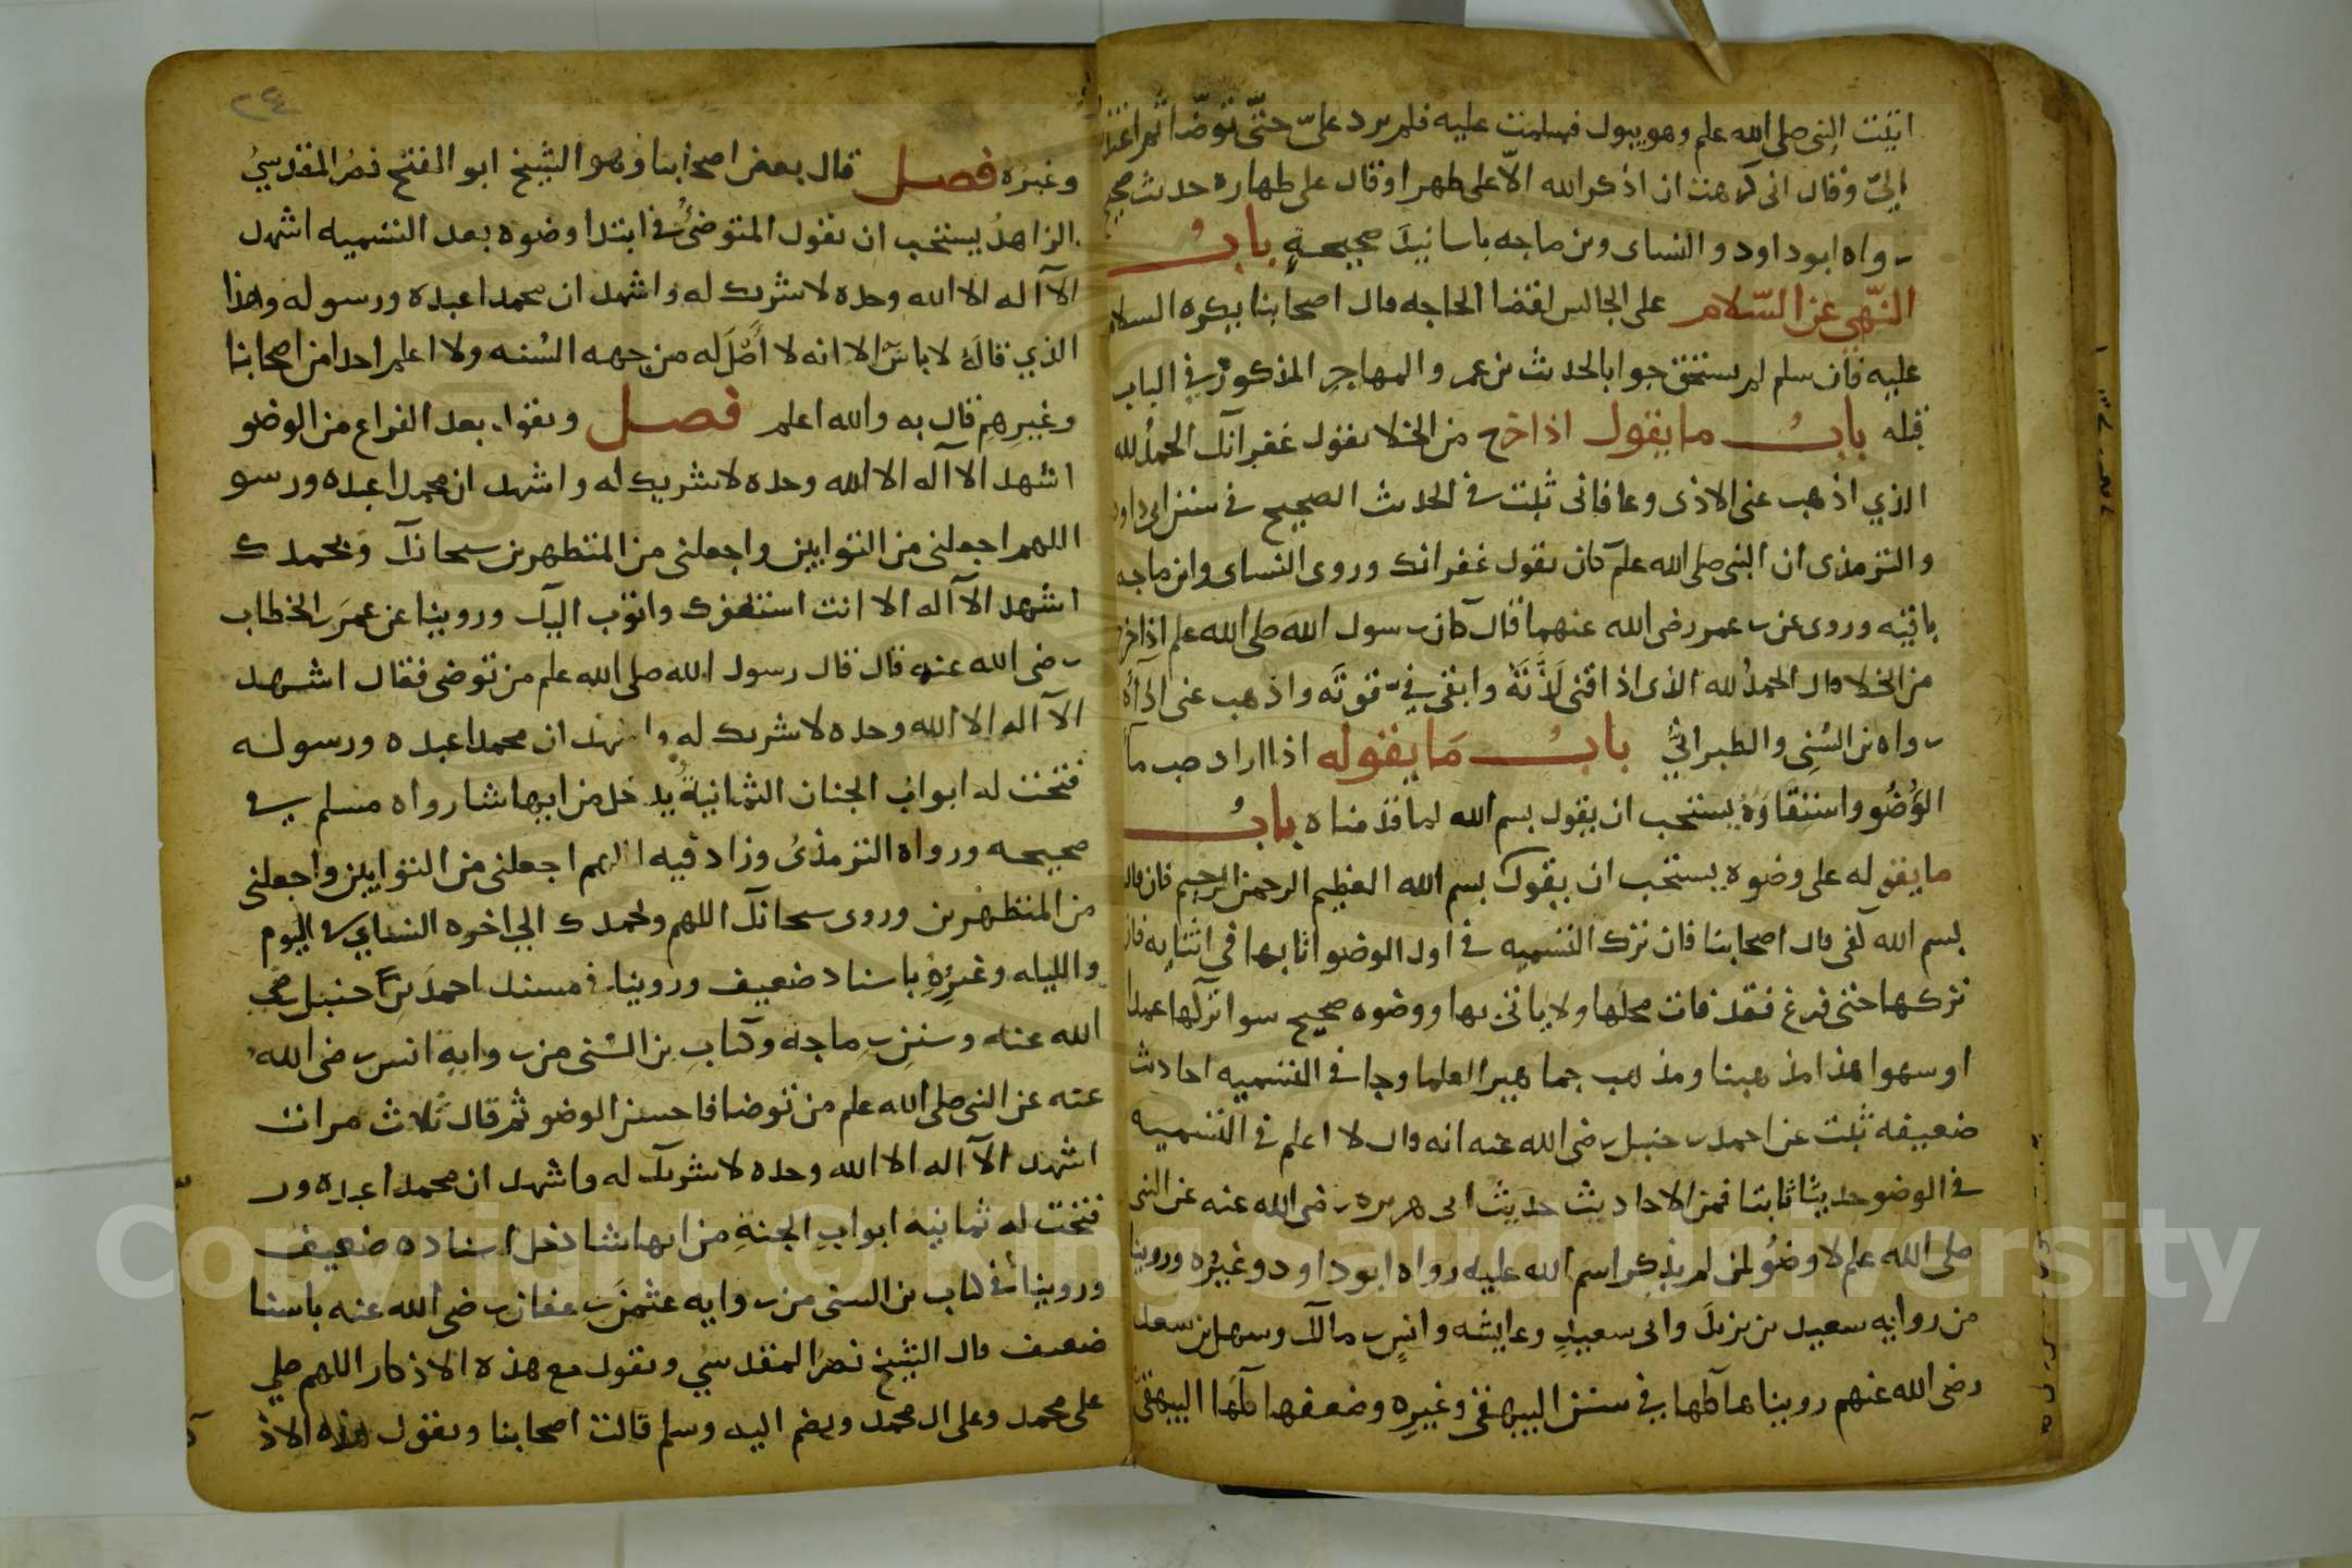 اتيت النبي صلى الله علم وهو يبول فسلمت عليه فلم يرد علىّ حتّى توضّا ثم اعتذر
اليّ وقال انى كرهت ان اذكر الله الّا على طهر او قال على طهاره حديث صحيح
رواه ابو داود والنساى وبن ماجه باسانيد صحيحةٍ بابُ
النّهي عن السّلام على الجالس لقضا الحاجه قال اصحابنا يكره السلام
عليه فان سلم لم يستحق جوابا لحديث بن عمر والمهاجر المذكور في الباب
قبله بابُ ما يقول اذا خرج من الخلا يقول غفرانك الحمدُ لله
الذي اذهب عنى الاذى وعافانى ثبت في الحديث الصحيح في سنن ابى داود
والترمذى ان النبى صلى الله علم كان يقول غفرانك وروى النساى وابن ماجه
باقيه وروى عن بن عمر رضى الله عنهما قال كان رسول الله صلى الله علم اذا خرج
من الخلا قال الحمدُ لله الذى اذاقنى لَذَّتَهُ وابقى فيّ قوتَه واذهب عنى اذاه
رواه بن السُنِى والطبرانيُّ بابُ مَا يقوله اذا اراد صب مآ
الوُضُو واستقاوَهُ يستحب ان يقول بسم الله لما قدمناه بابُ
ما يقوله على وضوه يستحب ان يقول بسم الله العظيم الرحمن الرحيم فان قال
بسم الله كفى قال اصحابنا فان ترك التسميه في اول الوضو اتا بها في اثنايه فان
تركها حتى فرغ فقد فات محلها ولا ياتى بها ووضوه صحيح سوا تركها عمدا
او سهوا هذا مذهبنا ومذهب جماهير العلما وجا في التسميه احاديث
ضعيفه ثبت عن احمد بن حنبل رضى الله عنه انه قال لا اعلم في التسميه
في الوضو حديثًا ثابتا فمن الاحاديث حديث ابى هريره رضى الله عنه عن النبى
صلى الله علم لا وضُو لمن لم يذكر اسم الله عليه رواه ابو داود وغيرُه وروينا
من روايه سعيد بن يزيدَ وابى سعيدٍ وعايشه وانسِ بن مالك وسهل بن سعد
رضى الله عنهم رويناها كلها في سنن البيهقى وغيرِه وضعفها كلَها البيهقىُ
٢٤
وغيرُه فصل قال بعض اصحابنا وهو الشيخ ابو الفتح نصرُ المقدسيُ
الزاهدُ يستحب ان يقول المتوضىُ في ابتدا وضوه بعد التسميه اشهد
الآ اله الا الله وحده لا شريك له واشهد ان محمدا عبده ورسوله وهذا
الذي قالَهُ لا باسَ الا انه لا اصلَ له من جهه السُنه ولا اعلم احدا من اصحابنا
وغيرِهِم قال به والله اعلم فصل ويقول بعد الفراغ من الوضو
اشهد الا اله الا الله وحده لا شريك له واشهد ان محمدا عبده ورسو
اللهم اجعلنى من التوابين واجعلنى من المتطهرين سبحانك وبحمدك
اشهد الآ اله الا انت استغفرك واتوب اليك وروينا عن عمرَ بن الخطاب
رضى الله عنه قال قال رسول الله صلى الله علم من توضى فقال اشهد
الآ اله الا الله وحده لا شريك له واشهد ان محمدا عبده ورسوله
فتحت له ابواب الجنان الثمانيةُ يدخل من ايها شا رواه مسلم في
صحيحه ورواه الترمذىُ وزاد فيه اللهم اجعلنى من التوابين واجعلنى
من المتطهرين وروى سبحانك اللهم وبحمدك الي اخره النساي في اليوم
والليله وغيرُهِ باسناد ضعيف وروينا في مسند احمدَ بن حنبل رضى
الله عنه وسنن بن ماجه وكتابِ بن السُنى من روايةِ انس رضى الله
عنه عن النبى صلى الله علم من توضا فاحسن الوضو ثم قال ثلاث مرات
اشهد الآ اله الا الله وحده لا شريك له واشهد ان محمدا عبده ور
فتحت له ثمانيهُ ابوابِ الجنةِ من ايها شا دخل اسناده ضعيف
وروينا في كتاب بن السنى من روايه عثمنَ بن عفان رضى الله عنه باسنا
ضعيف قال الشيخ نصرُ المقدسي ويقول مع هذه الاذكار اللهم صلي
على محمد وعلى ال محمد ويضم اليه وسلم قالت اصحابنا ويقول هذه الاذ
Copyright © King Saud University